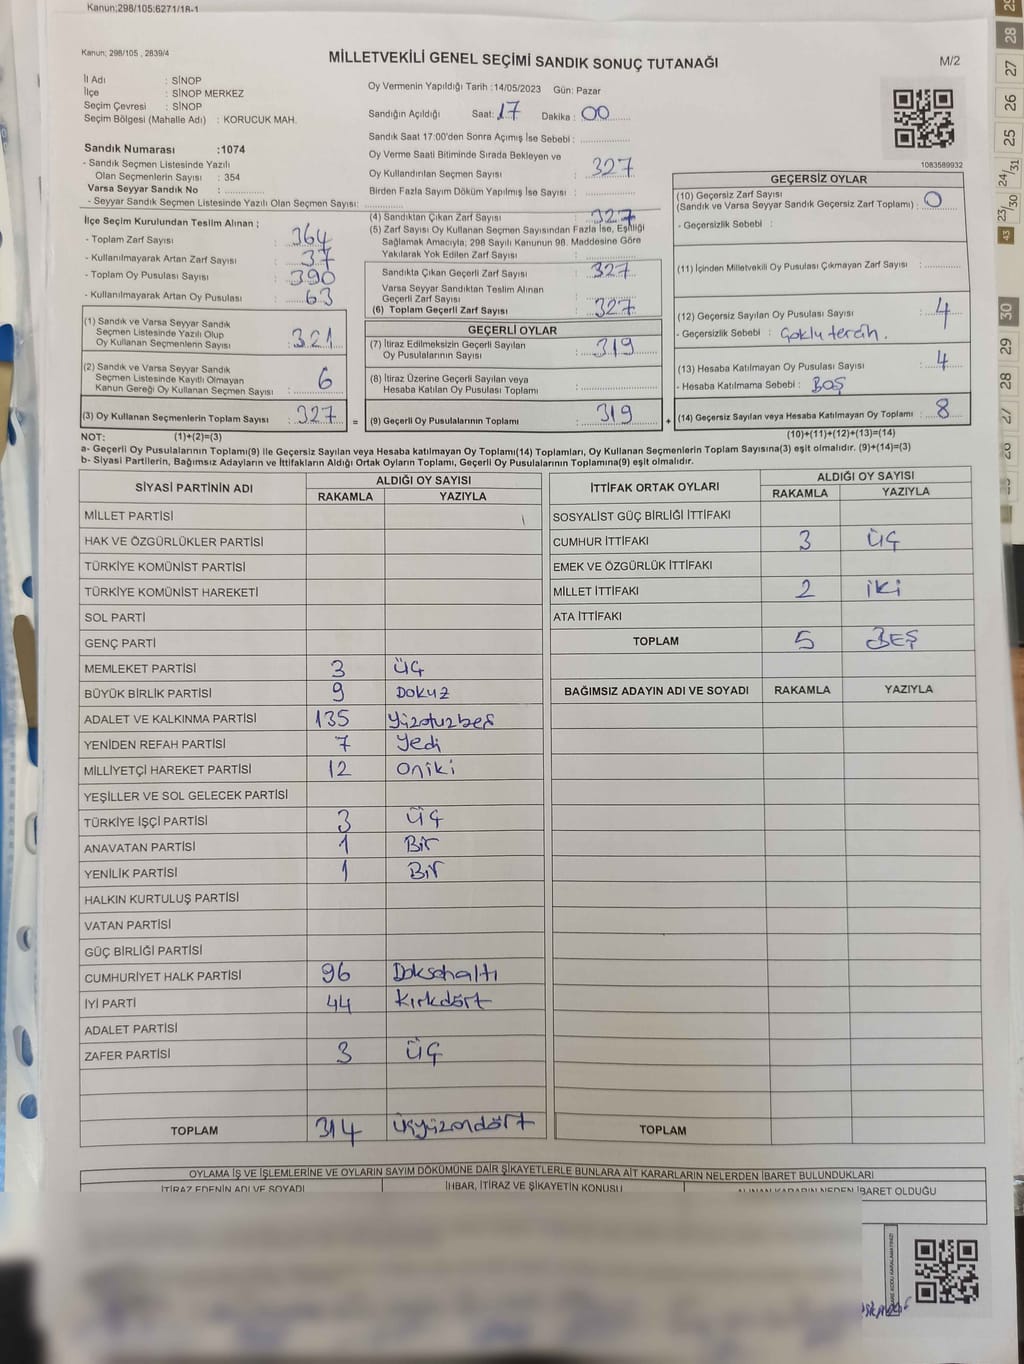 Kanun:298/105;6271/18-1
Kanun: 298/105 , 2839/4
MİLLETVEKİLİ GENEL SEÇİMİ SANDIK SONUÇ TUTANAĞI
M/2
İl Adı : SİNOP
İlçe : SİNOP MERKEZ
Seçim Çevresi : SİNOP
Seçim Bölgesi (Mahalle Adı) : KORUCUK MAH.
Sandık Numarası :1074
- Sandık Seçmen Listesinde Yazılı
Olan Seçmenlerin Sayısı : 354
Varsa Seyyar Sandık No :
- Seyyar Sandık Seçmen Listesinde Yazılı Olan Seçmen Sayısı:
Oy Vermenin Yapıldığı Tarih :14/05/2023 Gün: Pazar
Sandığın Açıldığı Saat: 17 Dakika : 00
Sandık Saat 17:00'den Sonra Açımış İse Sebebi :
Oy Verme Saati Bitiminde Sırada Bekleyen ve
Oy Kullandırılan Seçmen Sayısı : 327
Birden Fazla Sayım Döküm Yapılmış İse Sayısı :
1083589932
İlçe Seçim Kurulundan Teslim Alınan ;
- Toplam Zarf Sayısı : 364
- Kullanılmayarak Artan Zarf Sayısı : 37
- Toplam Oy Pusulası Sayısı : 390
- Kullanılmayarak Artan Oy Pusulası : 63
(1) Sandık ve Varsa Seyyar Sandık
Seçmen Listesinde Yazılı Olup
Oy Kullanan Seçmenlerin Sayısı : 321
(2) Sandık ve Varsa Seyyar Sandık
Seçmen Listesinde Kayıtlı Olmayan
Kanun Gereği Oy Kullanan Seçmen Sayısı : 6
(3) Oy Kullanan Seçmenlerin Toplam Sayısı : 327 =
(4) Sandıktan Çıkan Zarf Sayısı : 327
(5) Zarf Sayısı Oy Kullanan Seçmen Sayısından Fazla İse, Eşitliği
Sağlamak Amacıyla, 298 Sayılı Kanunun 98. Maddesine Göre
Yakılarak Yok Edilen Zarf Sayısı :
Sandıkta Çıkan Geçerli Zarf Sayısı : 327
Varsa Seyyar Sandıktan Teslim Alınan
Geçerli Zarf Sayısı :
(6) Toplam Geçerli Zarf Sayısı : 327
GEÇERLİ OYLAR
(7) İtiraz Edilmeksizin Geçerli Sayılan
Oy Pusulalarının Sayısı : 319
(8) İtiraz Üzerine Geçerli Sayılan veya
Hesaba Katılan Oy Pusulası Toplamı :
(9) Geçerli Oy Pusulalarının Toplamı : 319 +
GEÇERSİZ OYLAR
(10) Geçersiz Zarf Sayısı
(Sandık ve Varsa Seyyar Sandık Geçersiz Zarf Toplamı) : 0
- Geçersizlik Sebebi :
(11) İçinden Milletvekili Oy Pusulası Çıkmayan Zarf Sayısı :
(12) Geçersiz Sayılan Oy Pusulası Sayısı : 4
- Geçersizlik Sebebi : Çoklu tercih.
(13) Hesaba Katılmayan Oy Pusulası Sayısı : 4
- Hesaba Katılmama Sebebi : BOŞ
(14) Geçersiz Sayılan veya Hesaba Katılmayan Oy Toplamı : 8
NOT: (1)+(2)=(3) (10)+(11)+(12)+(13)=(14)
a- Geçerli Oy Pusulalarının Toplamı(9) ile Geçersiz Sayılan veya Hesaba Katılmayan Oy Toplamı(14) Toplamları, Oy Kullanan Seçmenlerin Toplam Sayısına(3) eşit olmalıdır. (9)+(14)=(3)
b- Siyasi Partilerin, Bağımsız Adayların ve İttifakların Aldığı Ortak Oyların Toplamı, Geçerli Oy Pusulalarının Toplamına(9) eşit olmalıdır.
SİYASİ PARTİNİN ADI ALDIĞI OY SAYISI
RAKAMLA YAZIYLA
MİLLET PARTİSİ
HAK VE ÖZGÜRLÜKLER PARTİSİ
TÜRKİYE KOMÜNİST PARTİSİ
TÜRKİYE KOMÜNİST HAREKETİ
SOL PARTİ
GENÇ PARTİ
MEMLEKET PARTİSİ 3 ÜÇ
BÜYÜK BİRLİK PARTİSİ 9 Dokuz
ADALET VE KALKINMA PARTİSİ 135 Yüzotuzbeş
YENİDEN REFAH PARTİSİ 7 Yedi
MİLLİYETÇİ HAREKET PARTİSİ 12 Oniki
YEŞİLLER VE SOL GELECEK PARTİSİ
TÜRKİYE İŞÇİ PARTİSİ 3 ÜÇ
ANAVATAN PARTİSİ 1 Bir
YENİLİK PARTİSİ 1 Bir
HALKIN KURTULUŞ PARTİSİ
VATAN PARTİSİ
GÜÇ BİRLİĞİ PARTİSİ
CUMHURİYET HALK PARTİSİ 96 Doksanaltı
İYİ PARTİ 44 Kırkdört
ADALET PARTİSİ
ZAFER PARTİSİ 3 ÜÇ
TOPLAM 314 Üçyüzondört
İTTİFAK ORTAK OYLARI ALDIĞI OY SAYISI
RAKAMLA YAZIYLA
SOSYALİST GÜÇ BİRLİĞİ İTTİFAKI
CUMHUR İTTİFAKI 3 ÜÇ
EMEK VE ÖZGÜRLÜK İTTİFAKI
MİLLET İTTİFAKI 2 iki
ATA İTTİFAKI
TOPLAM 5 BEŞ
BAĞIMSIZ ADAYIN ADI VE SOYADI RAKAMLA YAZIYLA
TOPLAM
OYLAMA İŞ VE İŞLEMLERİNE VE OYLARIN SAYIM DÖKÜMÜNE DAİR ŞİKAYETLERLE BUNLARA AİT KARARLARIN NELERDEN İBARET BULUNDUKLARI
İTİRAZ EDENİN ADI VE SOYADI İHBAR, İTİRAZ VE ŞİKAYETİN KONUSU ALINAN KARARIN NEDEN İBARET OLDUĞU